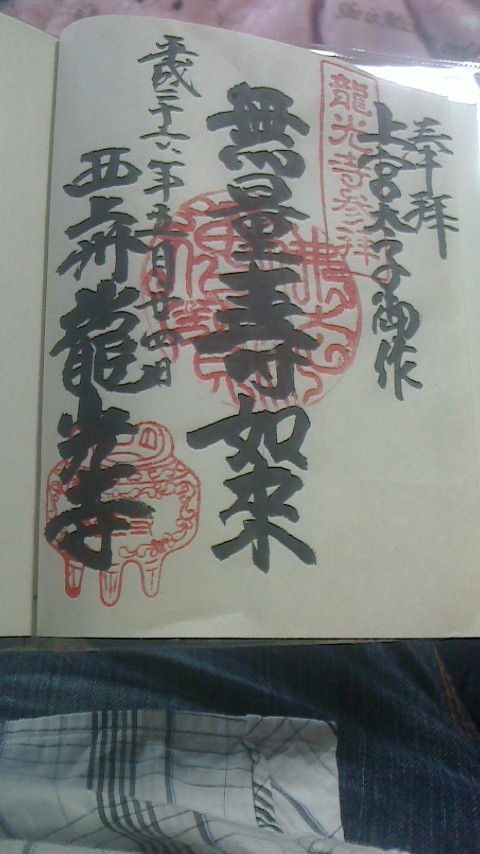 奉拝
上宮太子御作
龍光寺参拝
無量寿如来
平成二十六年五月廿四日
西上州龍光寺